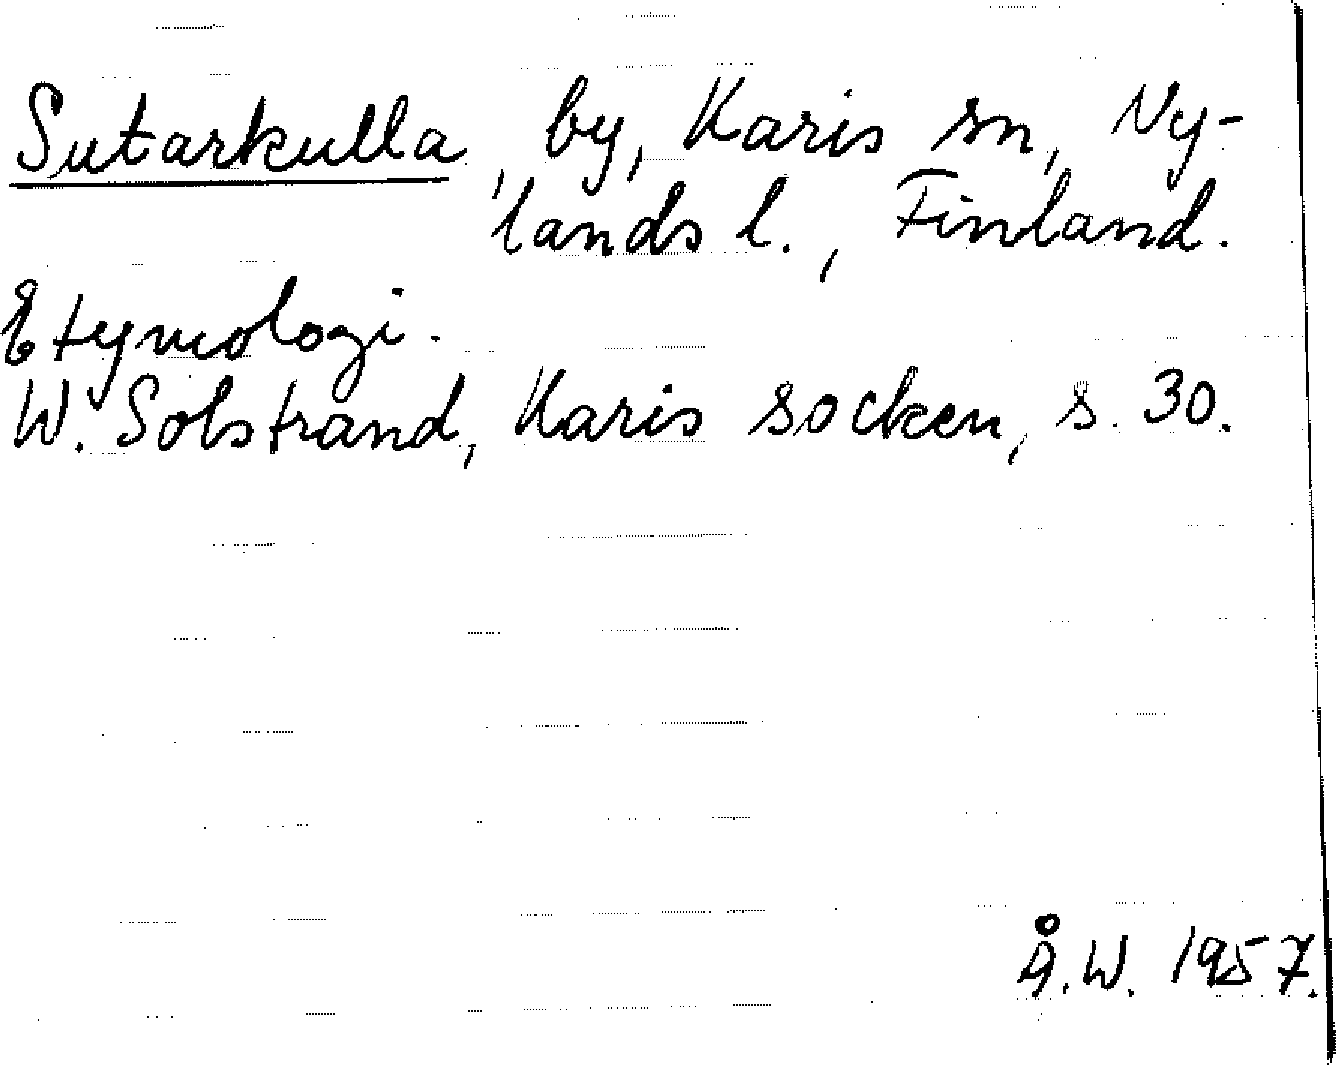 Sutarkulla, by, Karis sn, Ny-
lands l., Finland.
Etymologi.
W. Solstrand, Karis socken, s. 30.
Å.W. 1957.